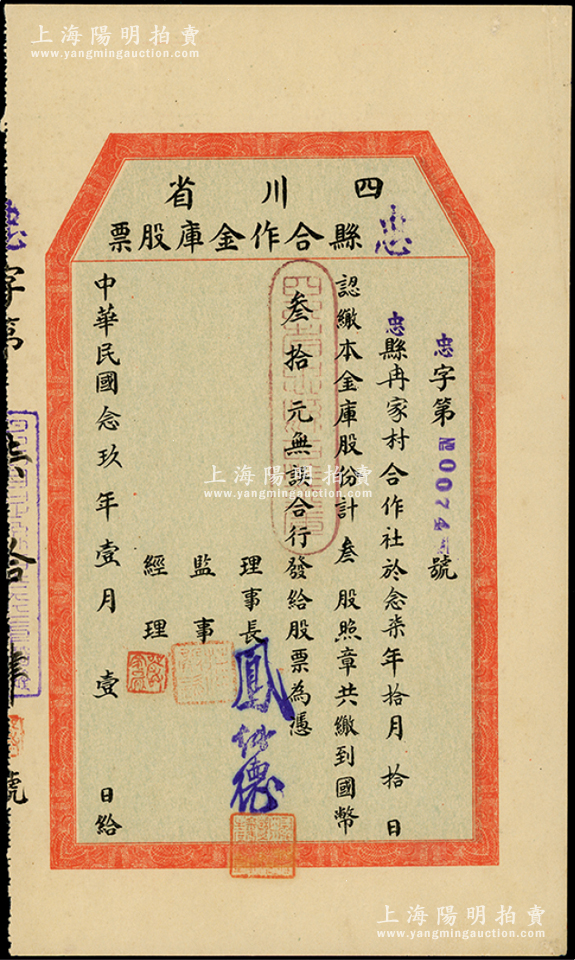 上海陽明拍賣
www.yangmingauction.com
四川省
忠縣合作金庫股票
忠字第
號
忠縣冉家村合作社於念柒年拾月拾日
認繳本金庫股份計叁股照章共繳到國幣
叁拾元無誤合行發給股票為憑
理事長
監事
經理
中華民國念玖年壹月壹日給
字第
號
上海陽明拍賣
www.yangmingauction.com
上海陽明拍賣
www.yangmingauction.com